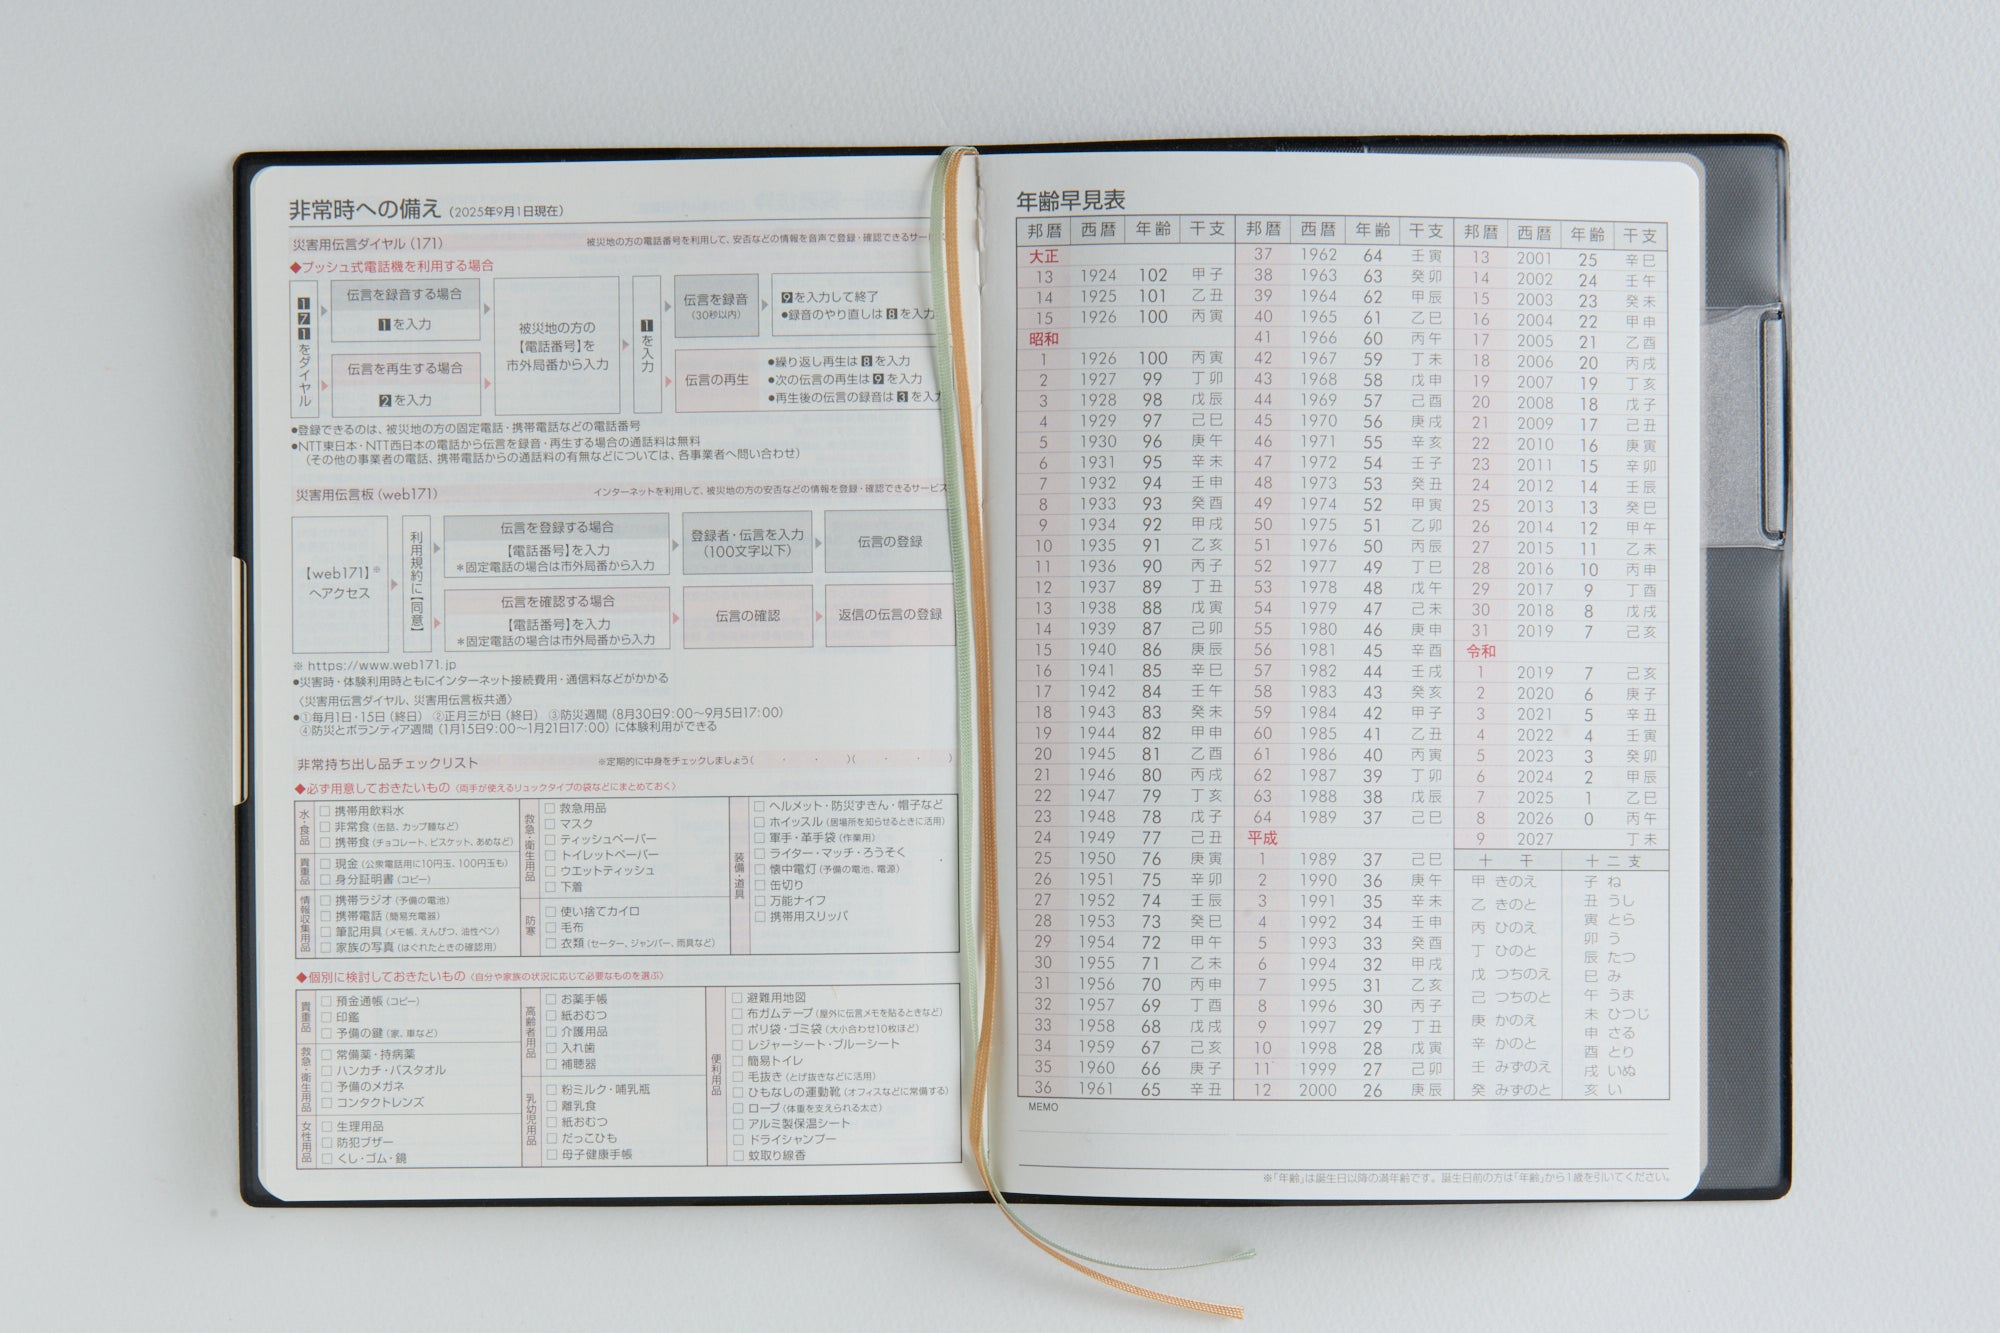 非常時への備え（2025年9月1日現在）
災害用伝言ダイヤル（171）
被災地の方の電話番号を利用して、安否などの情報を音声で登録・確認できるサー
◆プッシュ式電話機を利用する場合
171をダイヤル
伝言を録音する場合
1を入力
伝言を再生する場合
2を入力
被災地の方の
【電話番号】を
市外局番から入力
1を入力
伝言を録音
（30秒以内）
9を入力して終了
●録音のやり直しは8を入力
伝言の再生
●繰り返し再生は8を入力
●次の伝言の再生は9を入力
●再生後の伝言の録音は3を入力
●登録できるのは、被災地の方の固定電話・携帯電話などの電話番号
●NTT東日本・NTT西日本の電話から伝言を録音・再生する場合の通話料は無料
（その他の事業者の電話、携帯電話からの通話料の有無などについては、各事業者へ問い合わせ）
災害用伝言板（web171）
インターネットを利用して、被災地の方の安否などの情報を登録・確認できるサービス
【web171】※
へアクセス
利用規約に【同意】
伝言を登録する場合
【電話番号】を入力
＊固定電話の場合は市外局番から入力
登録者・伝言を入力
（100文字以下）
伝言の登録
伝言を確認する場合
【電話番号】を入力
＊固定電話の場合は市外局番から入力
伝言の確認
返信の伝言の登録
※ https://www.web171.jp
●災害時・体験利用時ともにインターネット接続費用・通信料などがかかる
〈災害用伝言ダイヤル、災害用伝言板共通〉
●①毎月1日・15日（終日） ②正月三が日（終日） ③防災週間（8月30日9:00〜9月5日17:00）
④防災とボランティア週間（1月15日9:00〜1月21日17:00）に体験利用ができる
非常持ち出し品チェックリスト
※定期的に中身をチェックしましょう（ ・ ・ ）（ ・ ・ ）
◆必ず用意しておきたいもの〈両手が使えるリュックタイプの袋などにまとめておく〉
水・食品
□ 携帯用飲料水
□ 非常食（缶詰、カップ麺など）
□ 携帯食（チョコレート、ビスケット、あめなど）
貴重品
□ 現金（公衆電話用に10円玉、100円玉も）
□ 身分証明書（コピー）
情報収集用品
□ 携帯ラジオ（予備の電池）
□ 携帯電話（簡易充電器）
□ 筆記用具（メモ帳、えんぴつ、油性ペン）
□ 家族の写真（はぐれたときの確認用）
救急・衛生用品
□ 救急用品
□ マスク
□ ティッシュペーパー
□ トイレットペーパー
□ ウエットティッシュ
□ 下着
防寒
□ 使い捨てカイロ
□ 毛布
□ 衣類（セーター、ジャンパー、雨具など）
装備・道具
□ ヘルメット・防災ずきん・帽子など
□ ホイッスル（居場所を知らせるときに活用）
□ 軍手・革手袋（作業用）
□ ライター・マッチ・ろうそく
□ 懐中電灯（予備の電池、電源）
□ 缶切り
□ 万能ナイフ
□ 携帯用スリッパ
◆個別に検討しておきたいもの〈自分や家族の状況に応じて必要なものを選ぶ〉
貴重品
□ 預金通帳（コピー）
□ 印鑑
□ 予備の鍵（家、車など）
救急・衛生用品
□ 常備薬・持病薬
□ ハンカチ・バスタオル
□ 予備のメガネ
□ コンタクトレンズ
女性用品
□ 生理用品
□ 防犯ブザー
□ くし・ゴム・鏡
高齢者用品
□ お薬手帳
□ 紙おむつ
□ 介護用品
□ 入れ歯
□ 補聴器
乳幼児用品
□ 粉ミルク・哺乳瓶
□ 離乳食
□ 紙おむつ
□ だっこひも
□ 母子健康手帳
便利用品
□ 避難用地図
□ 布ガムテープ（屋外に伝言メモを貼るときなど）
□ ポリ袋・ゴミ袋（大小合わせ10枚ほど）
□ レジャーシート・ブルーシート
□ 簡易トイレ
□ 毛抜き（とげ抜きなどに活用）
□ ひもなしの運動靴（オフィスなどに常備する）
□ ロープ（体重を支えられる太さ）
□ アルミ製保温シート
□ ドライシャンプー
□ 蚊取り線香
年齢早見表
邦暦 西暦 年齢 干支
大正
13 1924 102 甲子
14 1925 101 乙丑
15 1926 100 丙寅
昭和
1 1926 100 丙寅
2 1927 99 丁卯
3 1928 98 戊辰
4 1929 97 己巳
5 1930 96 庚午
6 1931 95 辛未
7 1932 94 壬申
8 1933 93 癸酉
9 1934 92 甲戌
10 1935 91 乙亥
11 1936 90 丙子
12 1937 89 丁丑
13 1938 88 戊寅
14 1939 87 己卯
15 1940 86 庚辰
16 1941 85 辛巳
17 1942 84 壬午
18 1943 83 癸未
19 1944 82 甲申
20 1945 81 乙酉
21 1946 80 丙戌
22 1947 79 丁亥
23 1948 78 戊子
24 1949 77 己丑
25 1950 76 庚寅
26 1951 75 辛卯
27 1952 74 壬辰
28 1953 73 癸巳
29 1954 72 甲午
30 1955 71 乙未
31 1956 70 丙申
32 1957 69 丁酉
33 1958 68 戊戌
34 1959 67 己亥
35 1960 66 庚子
36 1961 65 辛丑
邦暦 西暦 年齢 干支
37 1962 64 壬寅
38 1963 63 癸卯
39 1964 62 甲辰
40 1965 61 乙巳
41 1966 60 丙午
42 1967 59 丁未
43 1968 58 戊申
44 1969 57 己酉
45 1970 56 庚戌
46 1971 55 辛亥
47 1972 54 壬子
48 1973 53 癸丑
49 1974 52 甲寅
50 1975 51 乙卯
51 1976 50 丙辰
52 1977 49 丁巳
53 1978 48 戊午
54 1979 47 己未
55 1980 46 庚申
56 1981 45 辛酉
57 1982 44 壬戌
58 1983 43 癸亥
59 1984 42 甲子
60 1985 41 乙丑
61 1986 40 丙寅
62 1987 39 丁卯
63 1988 38 戊辰
64 1989 37 己巳
平成
1 1989 37 己巳
2 1990 36 庚午
3 1991 35 辛未
4 1992 34 壬申
5 1993 33 癸酉
6 1994 32 甲戌
7 1995 31 乙亥
8 1996 30 丙子
9 1997 29 丁丑
10 1998 28 戊寅
11 1999 27 己卯
12 2000 26 庚辰
邦暦 西暦 年齢 干支
13 2001 25 辛巳
14 2002 24 壬午
15 2003 23 癸未
16 2004 22 甲申
17 2005 21 乙酉
18 2006 20 丙戌
19 2007 19 丁亥
20 2008 18 戊子
21 2009 17 己丑
22 2010 16 庚寅
23 2011 15 辛卯
24 2012 14 壬辰
25 2013 13 癸巳
26 2014 12 甲午
27 2015 11 乙未
28 2016 10 丙申
29 2017 9 丁酉
30 2018 8 戊戌
31 2019 7 己亥
令和
1 2019 7 己亥
2 2020 6 庚子
3 2021 5 辛丑
4 2022 4 壬寅
5 2023 3 癸卯
6 2024 2 甲辰
7 2025 1 乙巳
8 2026 0 丙午
9 2027 丁未
十干
甲 きのえ
乙 きのと
丙 ひのえ
丁 ひのと
戊 つちのえ
己 つちのと
庚 かのえ
辛 かのと
壬 みずのえ
癸 みずのと
十二支
子 ね
丑 うし
寅 とら
卯 う
辰 たつ
巳 み
午 うま
未 ひつじ
申 さる
酉 とり
戌 いぬ
亥 い
MEMO
※「年齢」は誕生日以降の満年齢です。誕生日前の方は「年齢」から1歳を引いてください。